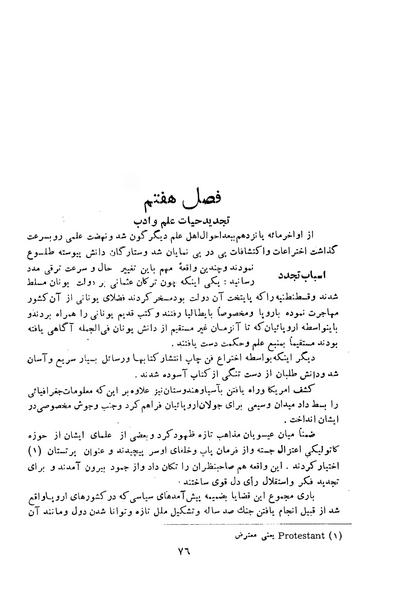 فصل هفتم
تجدید حیات علم و ادب
از اواخر مائه پانزدهم ببعد احوال اهل علم دیگرگون شد و نهضت علمی رو بسرعت
گذاشت اختراعات و اکتشافات پی در پی نمایان شد و ستارگان دانش پیوسته طلوع
نمودند و چندین واقعهٔ مهم باین تغییر حال و سرعت ترقی مدد
اسباب تجدد
رسانید : یکی اینکه چون ترکان عثمانی بر دولت یونان مسلط
شدند و قسطنطنیه را که پایتخت آن دولت بود مسخر کردند فضلای یونانی از آن کشور
مهاجرت نموده باروپا و مخصوصاً بایطالیا رفتند و کتب قدیم یونانی را همراه بردند و
باینواسطه اروپائیان که تا آنزمان غیر مستقیم از دانش یونان فی الجمله آگاهی یافته
بودند مستقیماً بمنبع علم و حکمت دست یافتند .
دیگر اینکه بواسطه اختراع فن چاپ انتشار کتابها و رسائل بسیار سریع و آسان
شد و دانش طلبان از دست تنگی از کتاب آسوده شدند .
کشف امریکا و راه یافتن بآسیا و هندوستان نیز علاوه بر این که معلومات جغرافیائی
را بسط داد میدان وسیعی برای جولان اروپائیان فراهم کرد و جنب و جوش مخصوصی در
ایشان انداخت .
ضمناً میان عیسویان مذاهب تازه ظهور کرد و بعضی از علمای ایشان از حوزه
کاتولیکی اعتزال جسته و از فرمان پاپ و خلفای او سر پیچیدند و عنوان پرتستان (۱)
اختیار کردند . این واقعه هم صاحبنظران را تکان داد و از جمود بیرون آمدند و برای
تجدید فکر و استقلال رأی دل قوی ساختند .
باری مجموع این قضایا بضمیمه پیش‌آمدهای سیاسی که در کشورهای اروپا واقع
شد از قبیل انجام یافتن جنگ صد ساله و تشکیل ملل تازه و توانا شدن دول و مانند آن
(۱) Protestant یعنی معترض
۷۶